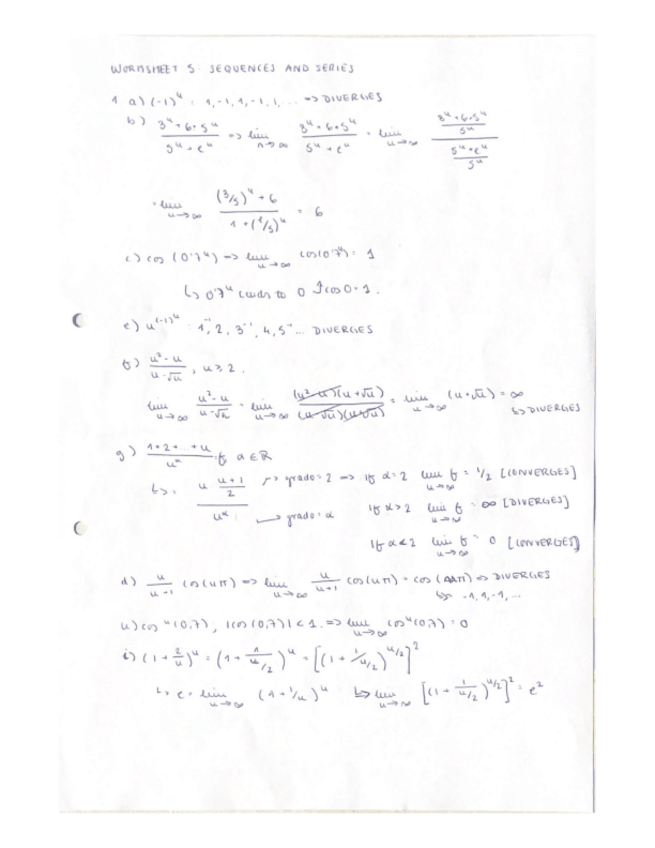 WORKSHEET 5: SEQUENCES AND SERIES
1 a) (-1)^n : 1, -1, 1, -1, 1, ... => DIVERGES
b) (3^n + 6·5^n)/(5^n + e^n) => lim n→∞ (3^n + 6·5^n)/(5^n + e^n) = lim n→∞ ((3^n + 6·5^n)/5^n)/((5^n + e^n)/5^n)
= lim n→∞ ((3/5)^n + 6)/(1 + (e/5)^n) = 6
c) cos (0'7^n) => lim n→∞ cos(0'7^n) = 1
↳ 0'7^n tends to 0 cos 0 = 1.
e) n^(-1)^n : 1^-1, 2, 3^-1, 4, 5^-1 ... DIVERGES
f) (n² - n)/(n - √n), n ≥ 2.
lim n→∞ (n² - n)/(n - √n) = lim n→∞ ((n² - n)(n + √n))/((n - √n)(n + √n)) = lim n→∞ (n + √n) = ∞
↳ DIVERGES
g) (1 + 2 + ... + n)/n^α = f, α ∈ ℝ
↳ = (n · (n+1)/2)/n^α → grado = 2 => If α = 2 lim n→∞ f = 1/2 [CONVERGES]
→ grado = α If α > 2 lim n→∞ f = ∞ [DIVERGES]
If α < 2 lim n→∞ f = 0 [CONVERGES]
d) n/(n+1) cos(nπ) => lim n→∞ n/(n+1) cos(nπ) = cos(nπ) => DIVERGES
↳ -1, 1, -1, ...
h) cos^n (0,7), |cos (0,7)| < 1 => lim n→∞ cos^n (0,7) = 0
i) (1 + 2/n)^n = (1 + 1/(n/2))^n = [(1 + 1/(n/2))^(n/2)]²
↳ e = lim n→∞ (1 + 1/n)^n ↳ lim n→∞ [(1 + 1/(n/2))^(n/2)]² = e²